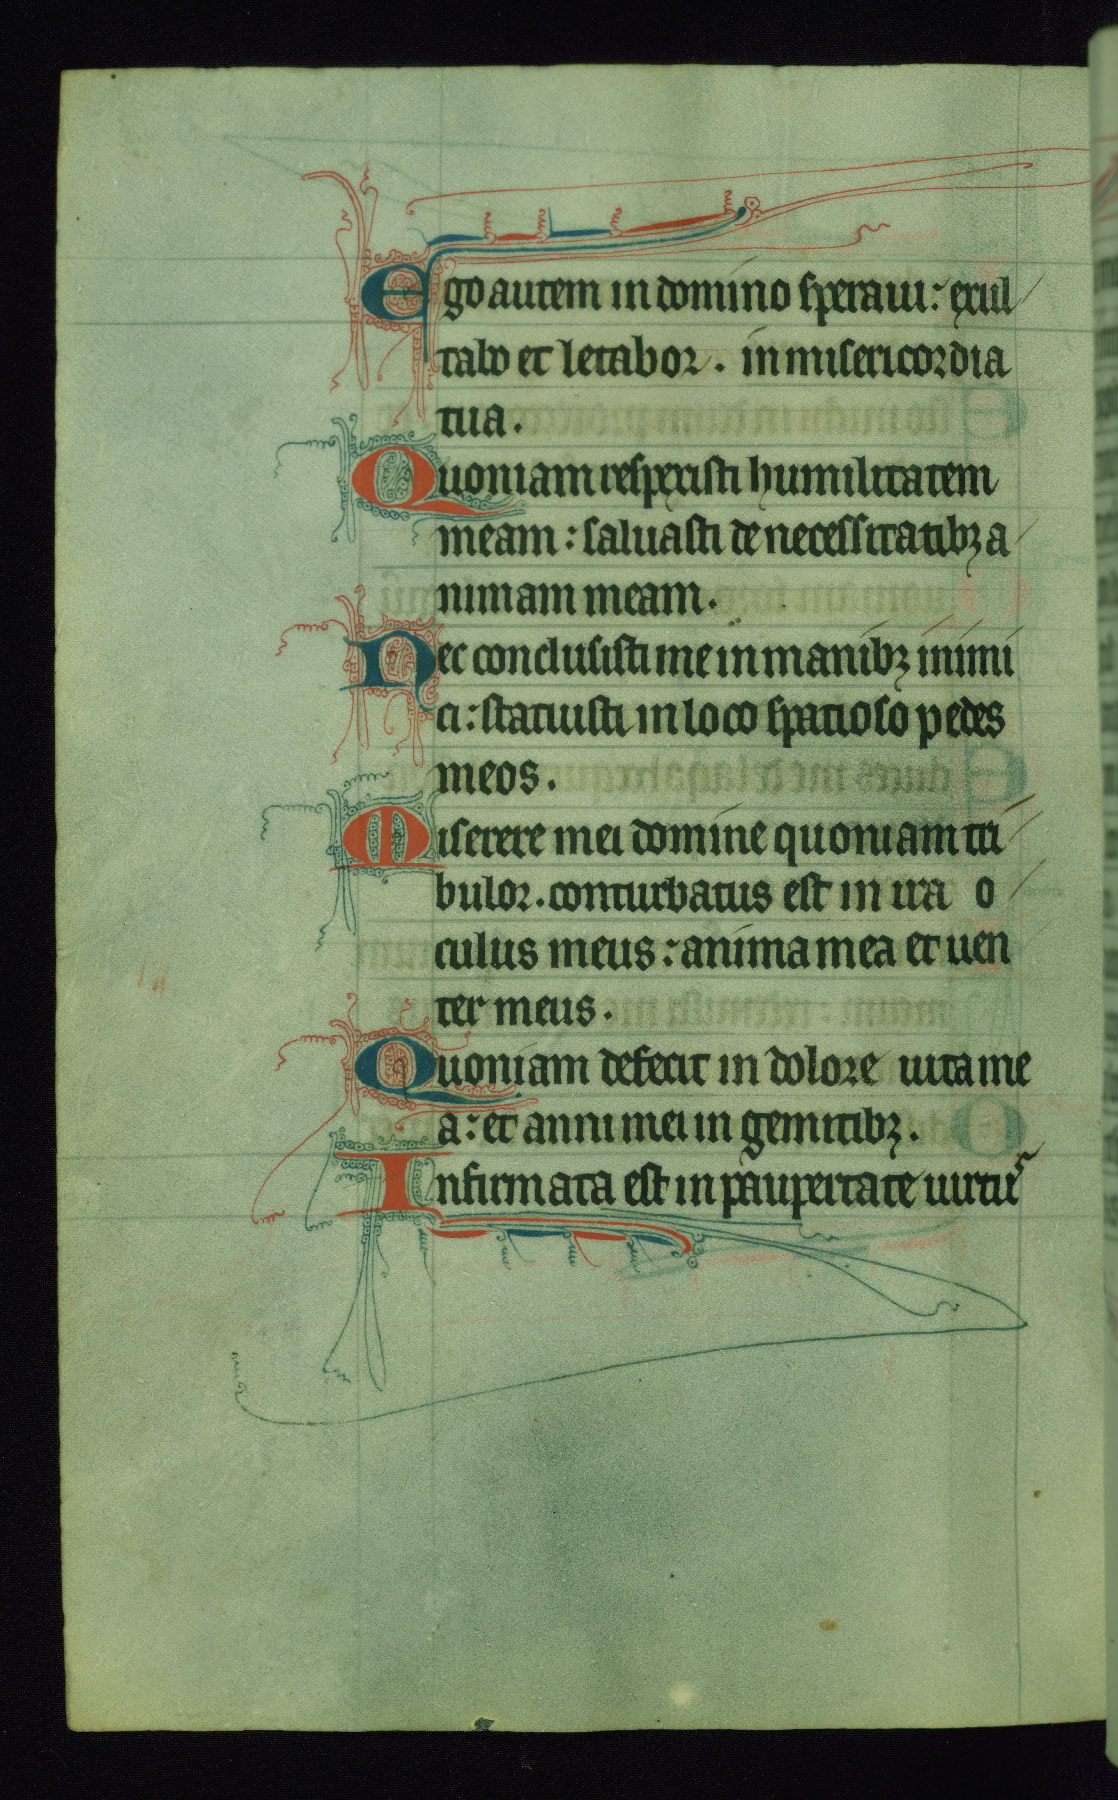 Ego autem in domino speraui: exul
tabo et letabor. in misericordia
tua.
Quoniam respexisti humilitatem
meam: saluasti de necessitatibꝫ a
nimam meam.
Nec conclusisti me in manibꝫ inimi
ci: statuisti in loco spatioso pedes
meos.
Miserere mei domine quoniam tri
bulor. conturbatus est in ira o
culus meus: anima mea et uen
ter meus.
Quoniam defecit in dolore uita me
a: et anni mei in gemitibꝫ.
Infirmata est in paupertate uirtu᷑